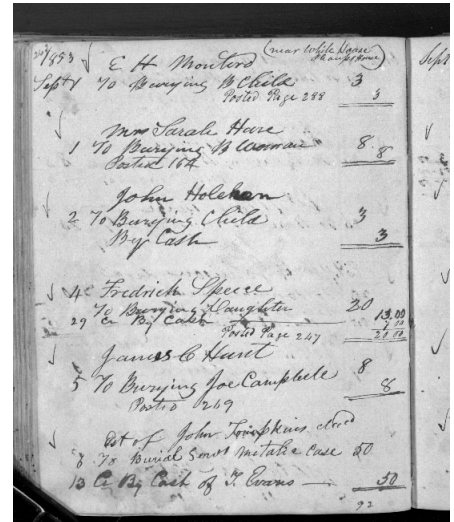 1853 E H Montiro (near White House
Sept 1 To Burying B Child 3
Posted Page 288 3
Mrs Sarah Hare
1 To Burying B Woman 8
Posted 164 8
John Holehan
2 To Burying Child 3
By Cash 3
4 Fredrich Speece
To Burying Daughter 20 13.00
29 Cr By Cash 7.00
Posted Page 247 20.00
James C Hunt
5 To Burying Joe Campbele 8
Posted 249 8
Est of John Tompkins decd
8 To Burial Son Metalic Case 50
13 Cr By Cash of T. Evans 50
92
Sept